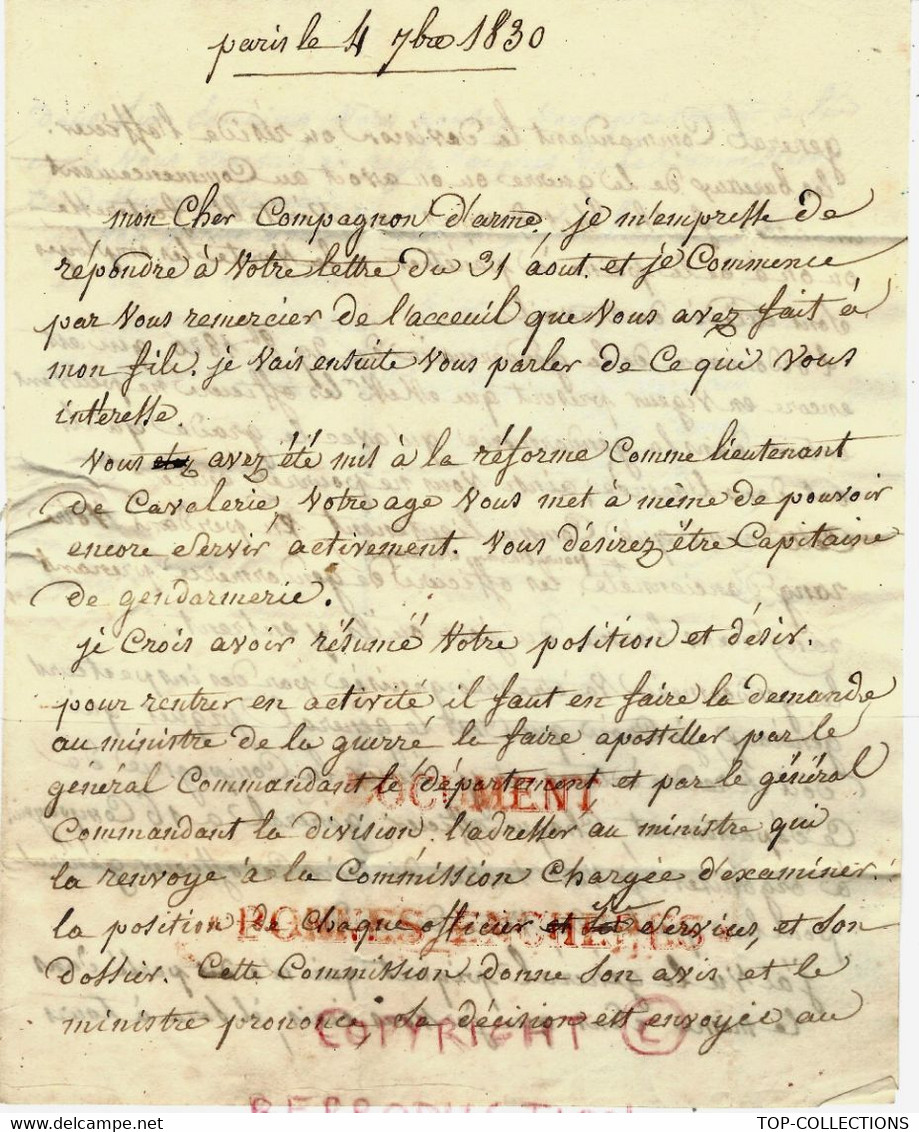 paris le 4 7bre 1830
mon Cher Compagnon d'arme, je m'empresse de
répondre à Votre lettre du 31 áout. et je Commence
par Vous remercier de l'acceuil que Vous avez fait à
mon fils. je Vais ensuite Vous parler de Ce qui Vous
intéresse.
Vous avez été mis à la réforme Comme lieutenant
de Cavalerie, Votre age Vous met à même de pouvoir
encore Servir activement. Vous désirez être Capitaine
de gendarmerie.
je Crois avoir résumé Votre position et désir.
pour rentrer en activité il faut en faire la demande
au ministre de la guerre la faire apostiller par le
général Commandant le département, et par le général
Commandant la division. l'adresser au ministre qui
la renvoye à la Commission Chargée d'examiner
la position de Chaque officier Services, et Son
dossier. Cette Commission donne Son avis et le
ministre prononce, Sa décision est envoyée au
DOCUMENT
BONNES ENCHERES
COPYRIGHT ©
REPRODUCTION
TOP-COLLECTIONS